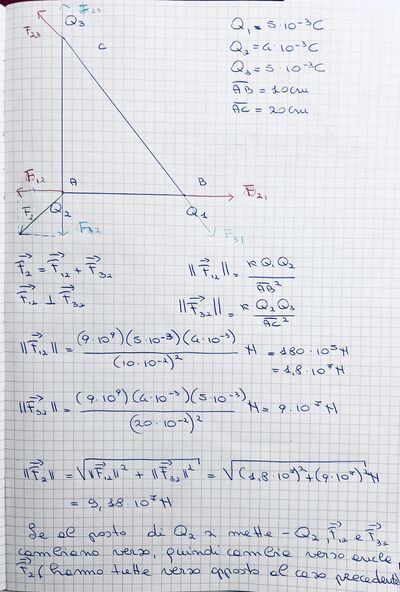 F₂₁
F₂₃ Q₃
C
Q₁ = 5·10⁻³C
Q₂ = 4·10⁻³C
Q₃ = 5·10⁻³C
AB = 10cm
AC = 20cm
F₁₂ A B F₂₁
F₂ Q₂ F₃₂ Q1
F₃₁
F₂ = F₁₂ + F₃₂
||F₁₂|| = K Q₁ Q₂ / AB²
F₁₂ ⊥ F₃₂
||F₃₂|| = K Q₂ Q₃ / AC²
||F₁₂|| = (9·10⁹)(5·10⁻³)(4·10⁻³) / (10·10⁻²)² N = 180·10⁵ N
= 1,8·10⁷ N
||F₃₂|| = (9·10⁹)(4·10⁻³)(5·10⁻³) / (20·10⁻²)² N = 9·10⁷ N
||F₂|| = √||F₁₂||² + ||F₃₂||² = √(1,8·10⁷)²+(9·10⁷)² N
= 9,18·10⁷ N
Se al posto di Q₂ si mette -Q₂, F₁₂ e F₃₂
cambiano verso, quindi cambia verso anche
F₂, hanno tutte verso opposto al caso precedente